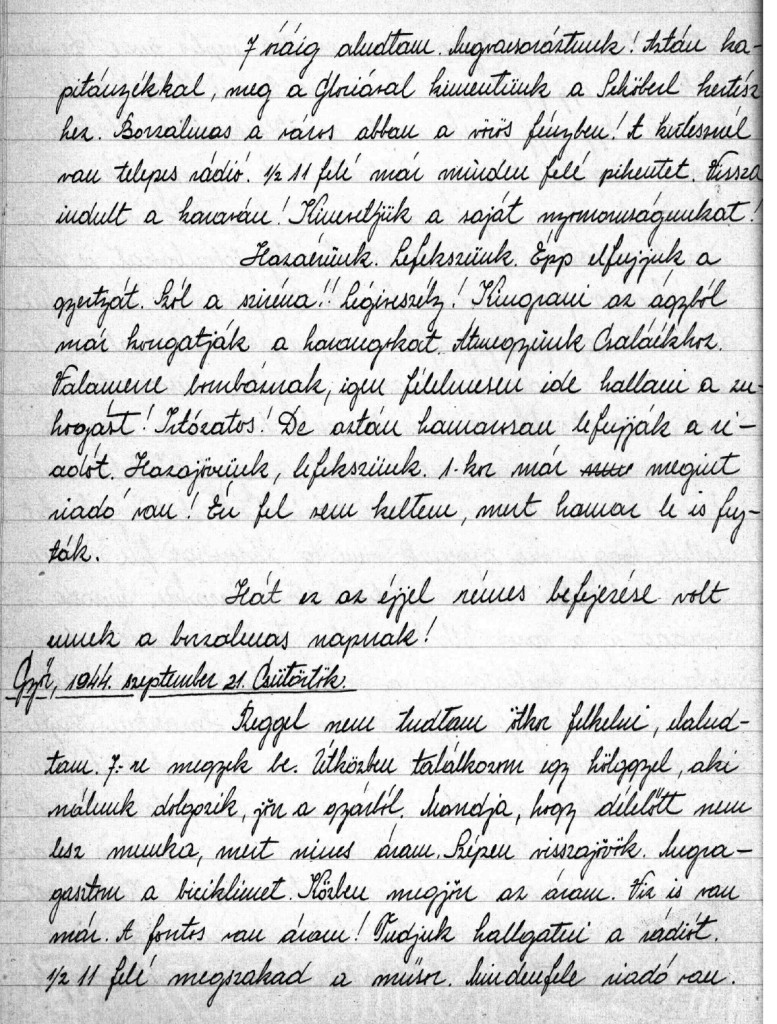 7 óráig aludtam. Megvacsoráztunk! Aztán ka-
pitányékkal, meg a Glóriával kimentünk a Schőberl kertész
hez. Borzalmas a város abban a vörös fényben! A kertésznél
van telepes rádió. 1/2 11 felé már minden felé pihentet. Vissza
indult a karaván! Kinevetjük a saját nyomorúságunkat!
Hazaérünk. Lefekszünk. Épp elfujjuk a
gyertyát. Szól a sziréna!! Légiveszély! Kiugrani az ágyból
már kongatják a harangokat. Átmegyünk Csaláékhoz.
Valamerre bombáznak, igen félelmesen ide hallani a zu-
hogást! Iszózatos! De aztán hamarosan lefujják a ri-
adót. Hazajövünk, lefekszünk. 1-kor már megint
riadó van! Én fel sem keltem, mert hamar le is fuj-
ták.
Hát ez az éjjel rémes befejezése volt
ennek a borzalmas napnak!
Győr, 1944. szeptember 21. Csütörtök.
Reggel nem tudtam ötkor felkelni, elalud-
tam. 7-re megyek be. Útközben találkozom egy hölggyel, aki
nálunk dolgozik, jön a gyárból. Mondja, hogy délelőtt nem
lesz munka, mert nincs áram. Szépen visszajövök. Megra-
gasztom a biciklimet. Közben megjön az áram. Víz is van
már. A fontos van áram! Tudjuk hallgatni a rádiót.
1/2 11 felé megszakad a műsor. Mindenfele riadó van.